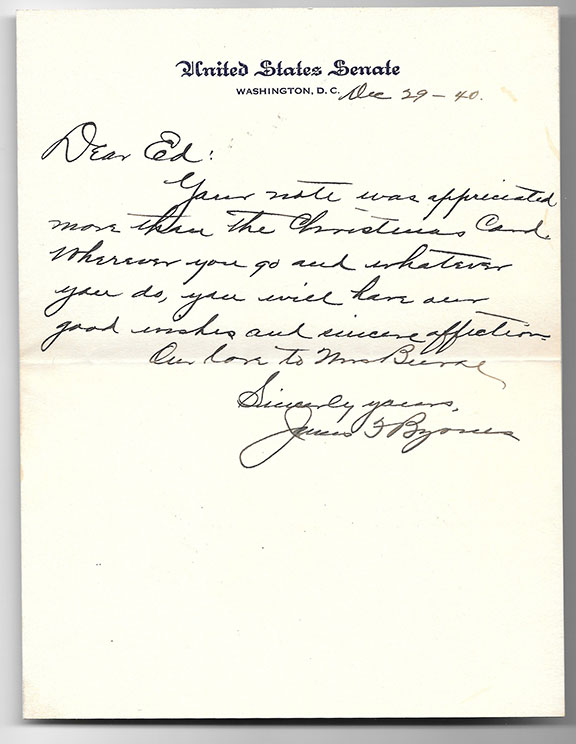 United States Senate
WASHINGTON, D. C. Dec 29 - 40.
Dear Ed:
Your note was appreciated
more than the Christmas Card.
Wherever you go and whatever
you do, you will have our
good wishes and sincere affection.
Our love to Mrs Burke
Sincerely yours,
James F Byrnes